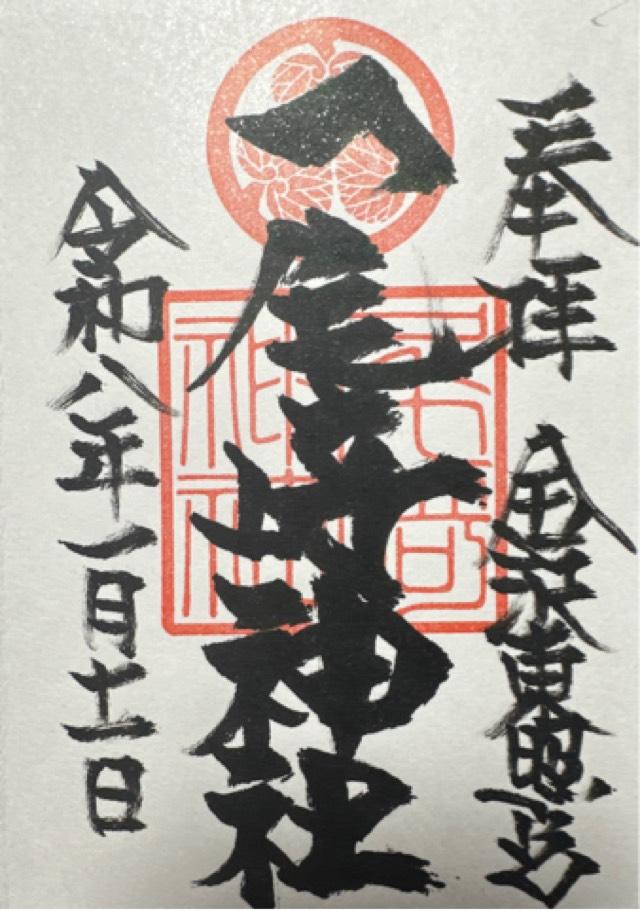 奉拝 金沢東照宮
尾崎神社
尾崎
神社
令和八年一月十一日